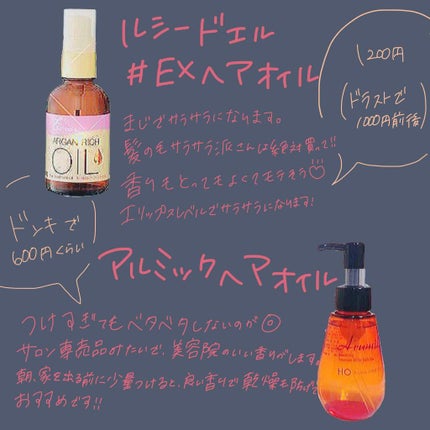 ルシードエル
#EXヘアオイル
1200円
(ドラストで
1000円前後)
まじでサラサラになります。
髪の毛サラサラ派さんは絶対買って!!
香りもとってもよくてモテそう
エリップスレベルでサラサラになります!
ARGAN RICH
OIL
ドンキで
600円くらい
アルミックヘアオイル
つけすぎてもベタベタしないのが◎
サロン専売品みたいで、美容院のいい香りがします。
朝、家を出る前に少量つけると、良い香りで乾燥も防げて
おすすめです!!
HO